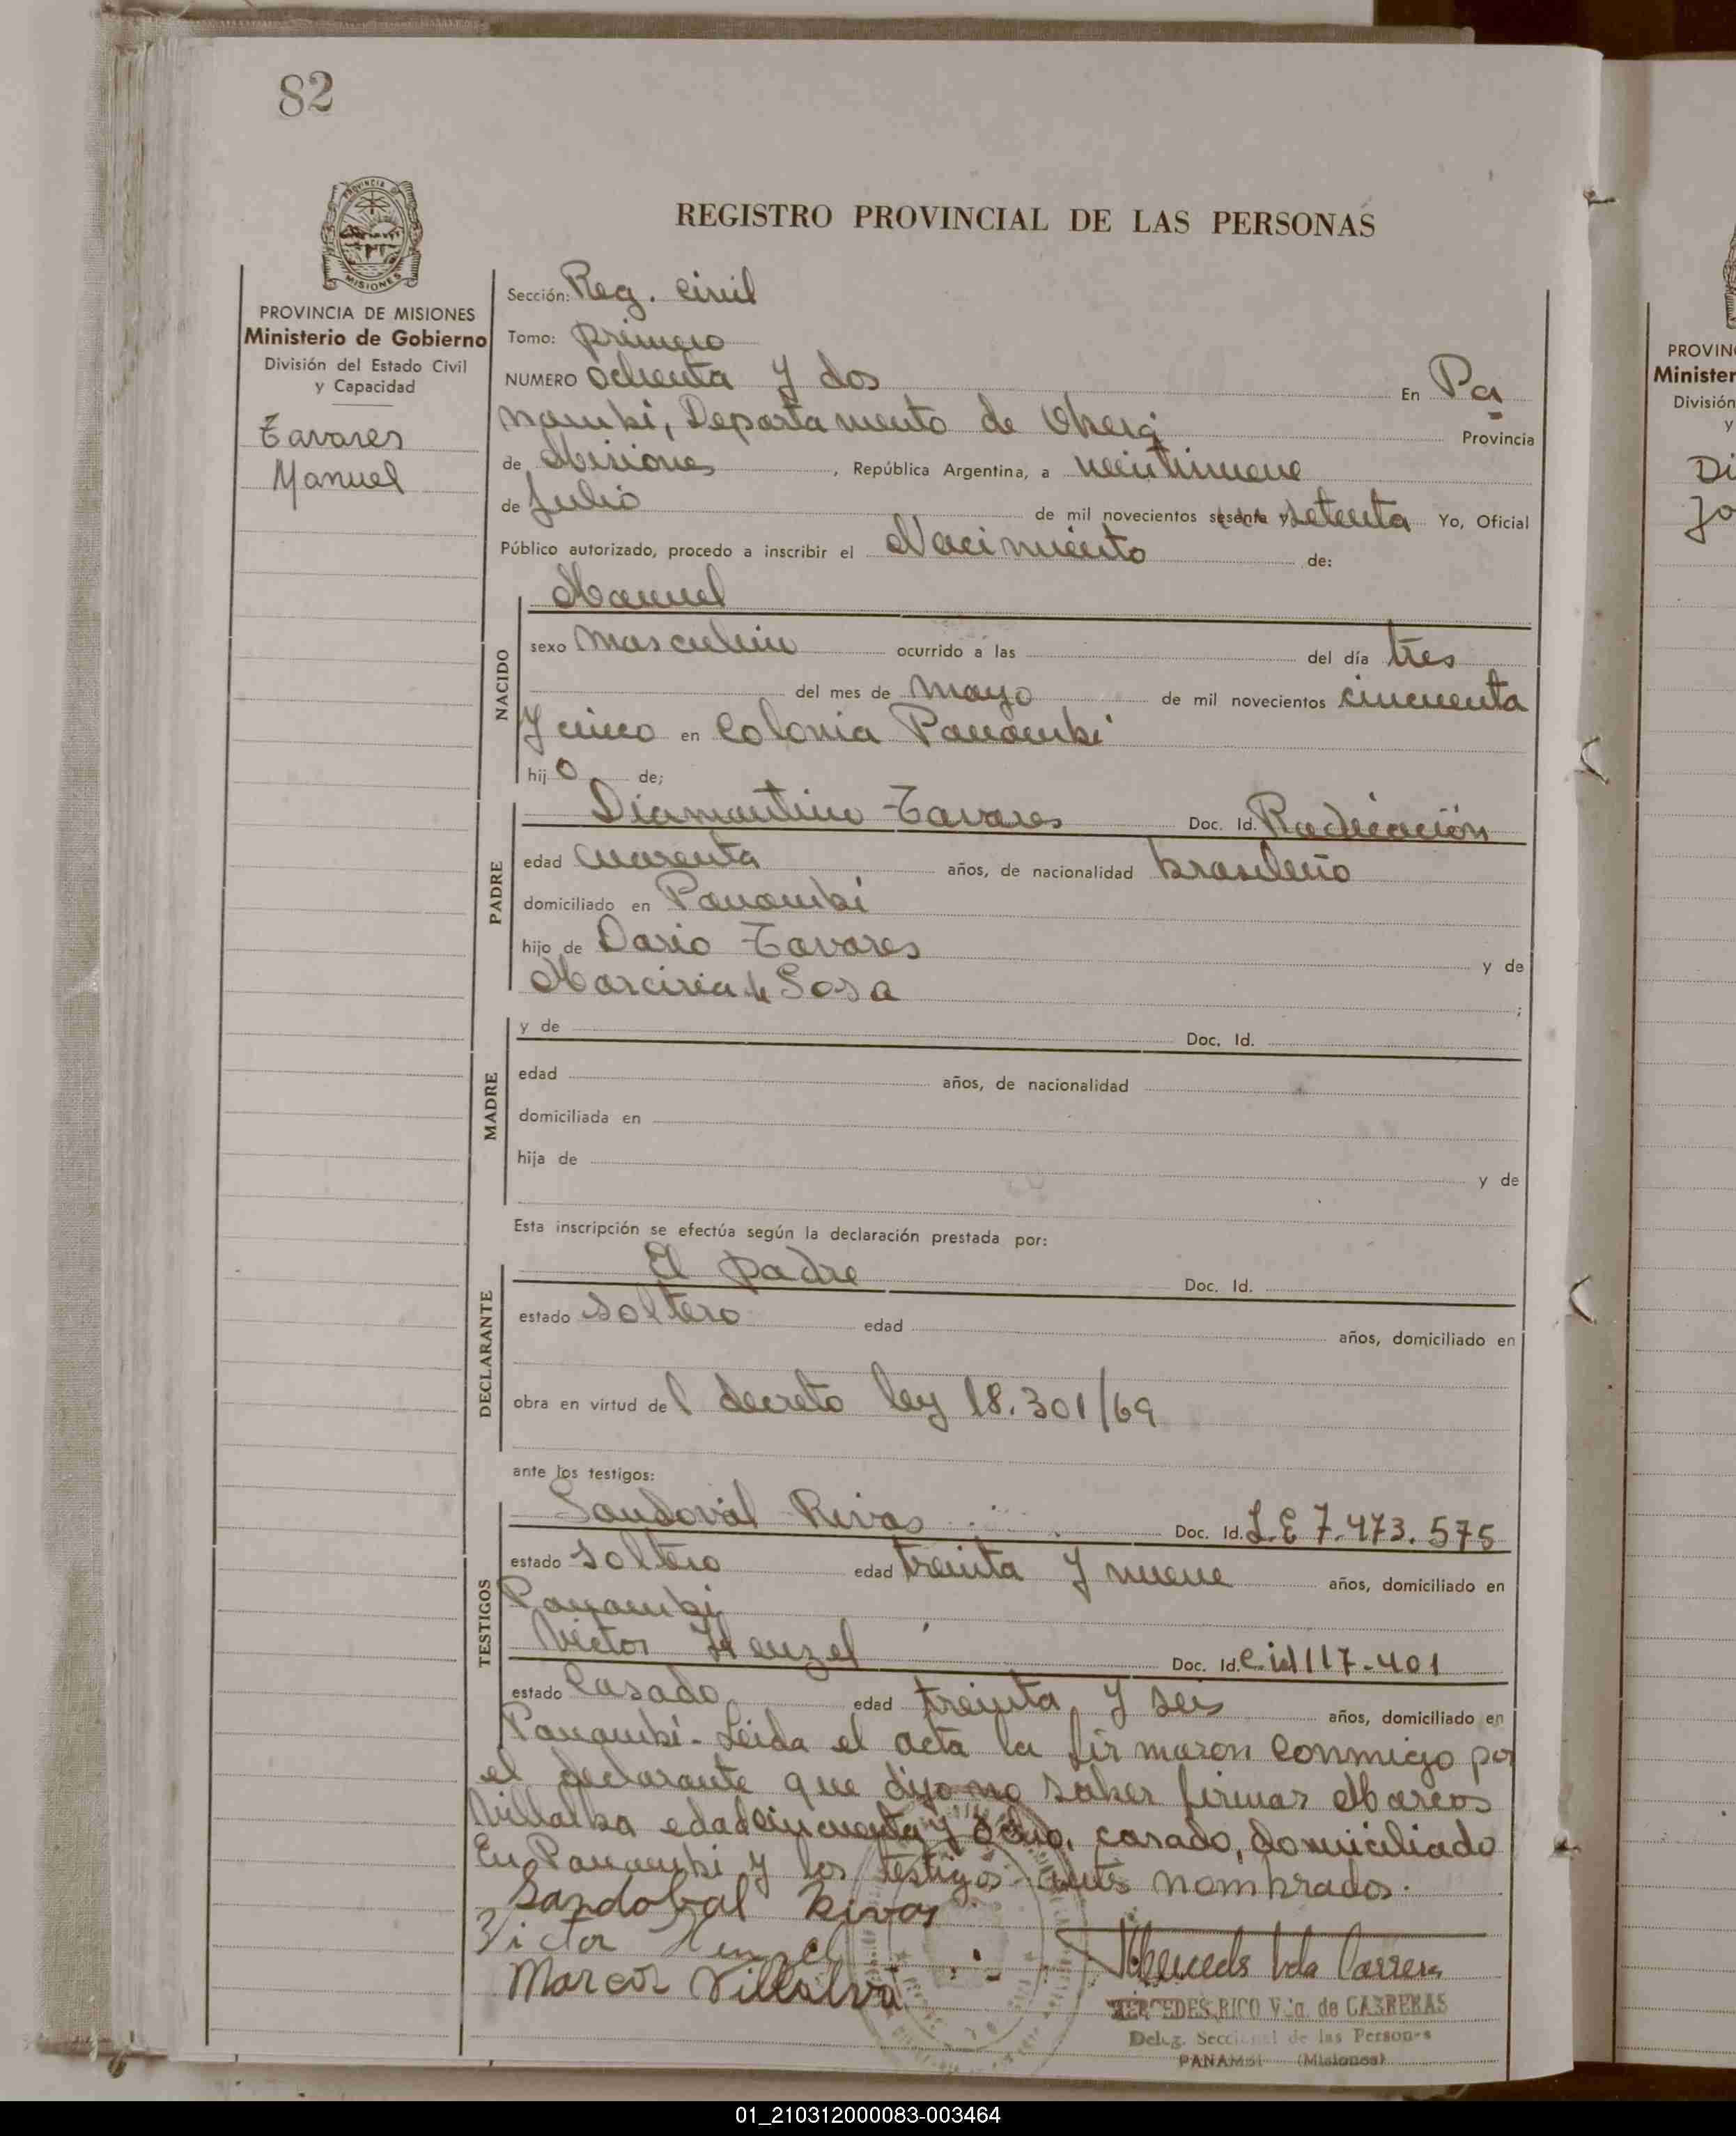 82
PROVINCIA DE
MISIONES
REGISTRO PROVINCIAL DE LAS PERSONAS
PROVINCIA DE MISIONES
Ministerio de Gobierno
División del Estado Civil
y Capacidad
Tavares
Manuel
Sección: Reg. Civil
Tomo: primero
NUMERO ochenta y dos En Pa
nambi, Departamento de Oberá Provincia
de Misiones, República Argentina, a veintinueve
de Julio de mil novecientos sesenta y setenta Yo, Oficial
Público autorizado, procedo a inscribir el Nacimiento de:
NACIDO
Manuel
sexo masculino ocurrido a las del día tres
del mes de mayo de mil novecientos cincuenta
y cinco en Colonia Panambi
hij o de;
PADRE
Diamantino Tavares Doc. Id. Radicación
edad cuarenta años, de nacionalidad brasileño
domiciliado en Panambi
hijo de Dario Tavares y de
Marciria de Sosa ;
MADRE
y de Doc. Id.
edad años, de nacionalidad
domiciliada en
hija de y de
Esta inscripción se efectúa según la declaración prestada por:
DECLARANTE
El padre Doc. Id.
estado soltero edad años, domiciliado en
obra en virtud del decreto ley 18.301/69
ante los testigos:
TESTIGOS
Sandoval Rivas Doc. Id. L.E 7.473.575
estado soltero edad treinta y nueve años, domiciliado en
Panambi
Victor Henzel Doc. Id. C.id 117.401
estado Casado edad treinta y seis años, domiciliado en
Panambi - Leida el acta la firmaron conmigo por
el declarante que dijo no saber firmar Marcos
Villalba edad cincuenta y ocho, casado, domiciliado
En Panambi y los testigos antes nombrados.
Sandobal Rivas
Victor Henzel
Marcos Villalva
Mercedes Vda Carrera
MERCEDES RICO Vda. de CARRERAS
Deleg. Seccional de las Personas
PANAMBI (Misiones)
PROVIN
Minister
División
y
Di
Jo
01_210312000083-003464